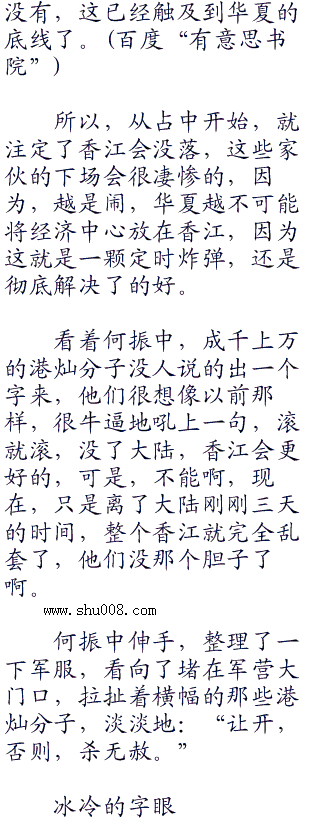 没有，这已经触及到华夏的
底线了。(百度“有意思书
院”)
所以，从占中开始，就
注定了香江会没落，这些家
伙的下场会很凄惨的，因
为，越是闹，华夏越不可能
将经济中心放在香江，因为
这就是一颗定时炸弹，还是
彻底解决了的好。
看着何振中，成千上万
的港灿分子没人说的出一个
字来，他们很想像以前那
样，很牛逼地吼上一句，滚
就滚，没了大陆，香江会更
好的，可是，不能啊，现
在，只是离了大陆刚刚三天
的时间，整个香江就完全乱
套了，他们没那个胆子了
啊。
www.shu008.com
何振中伸手，整理了一
下军服，看向了堵在军营大
门口，拉扯着横幅的那些港
灿分子，淡淡地：“让开，
否则，杀无赦。”
冰冷的字眼